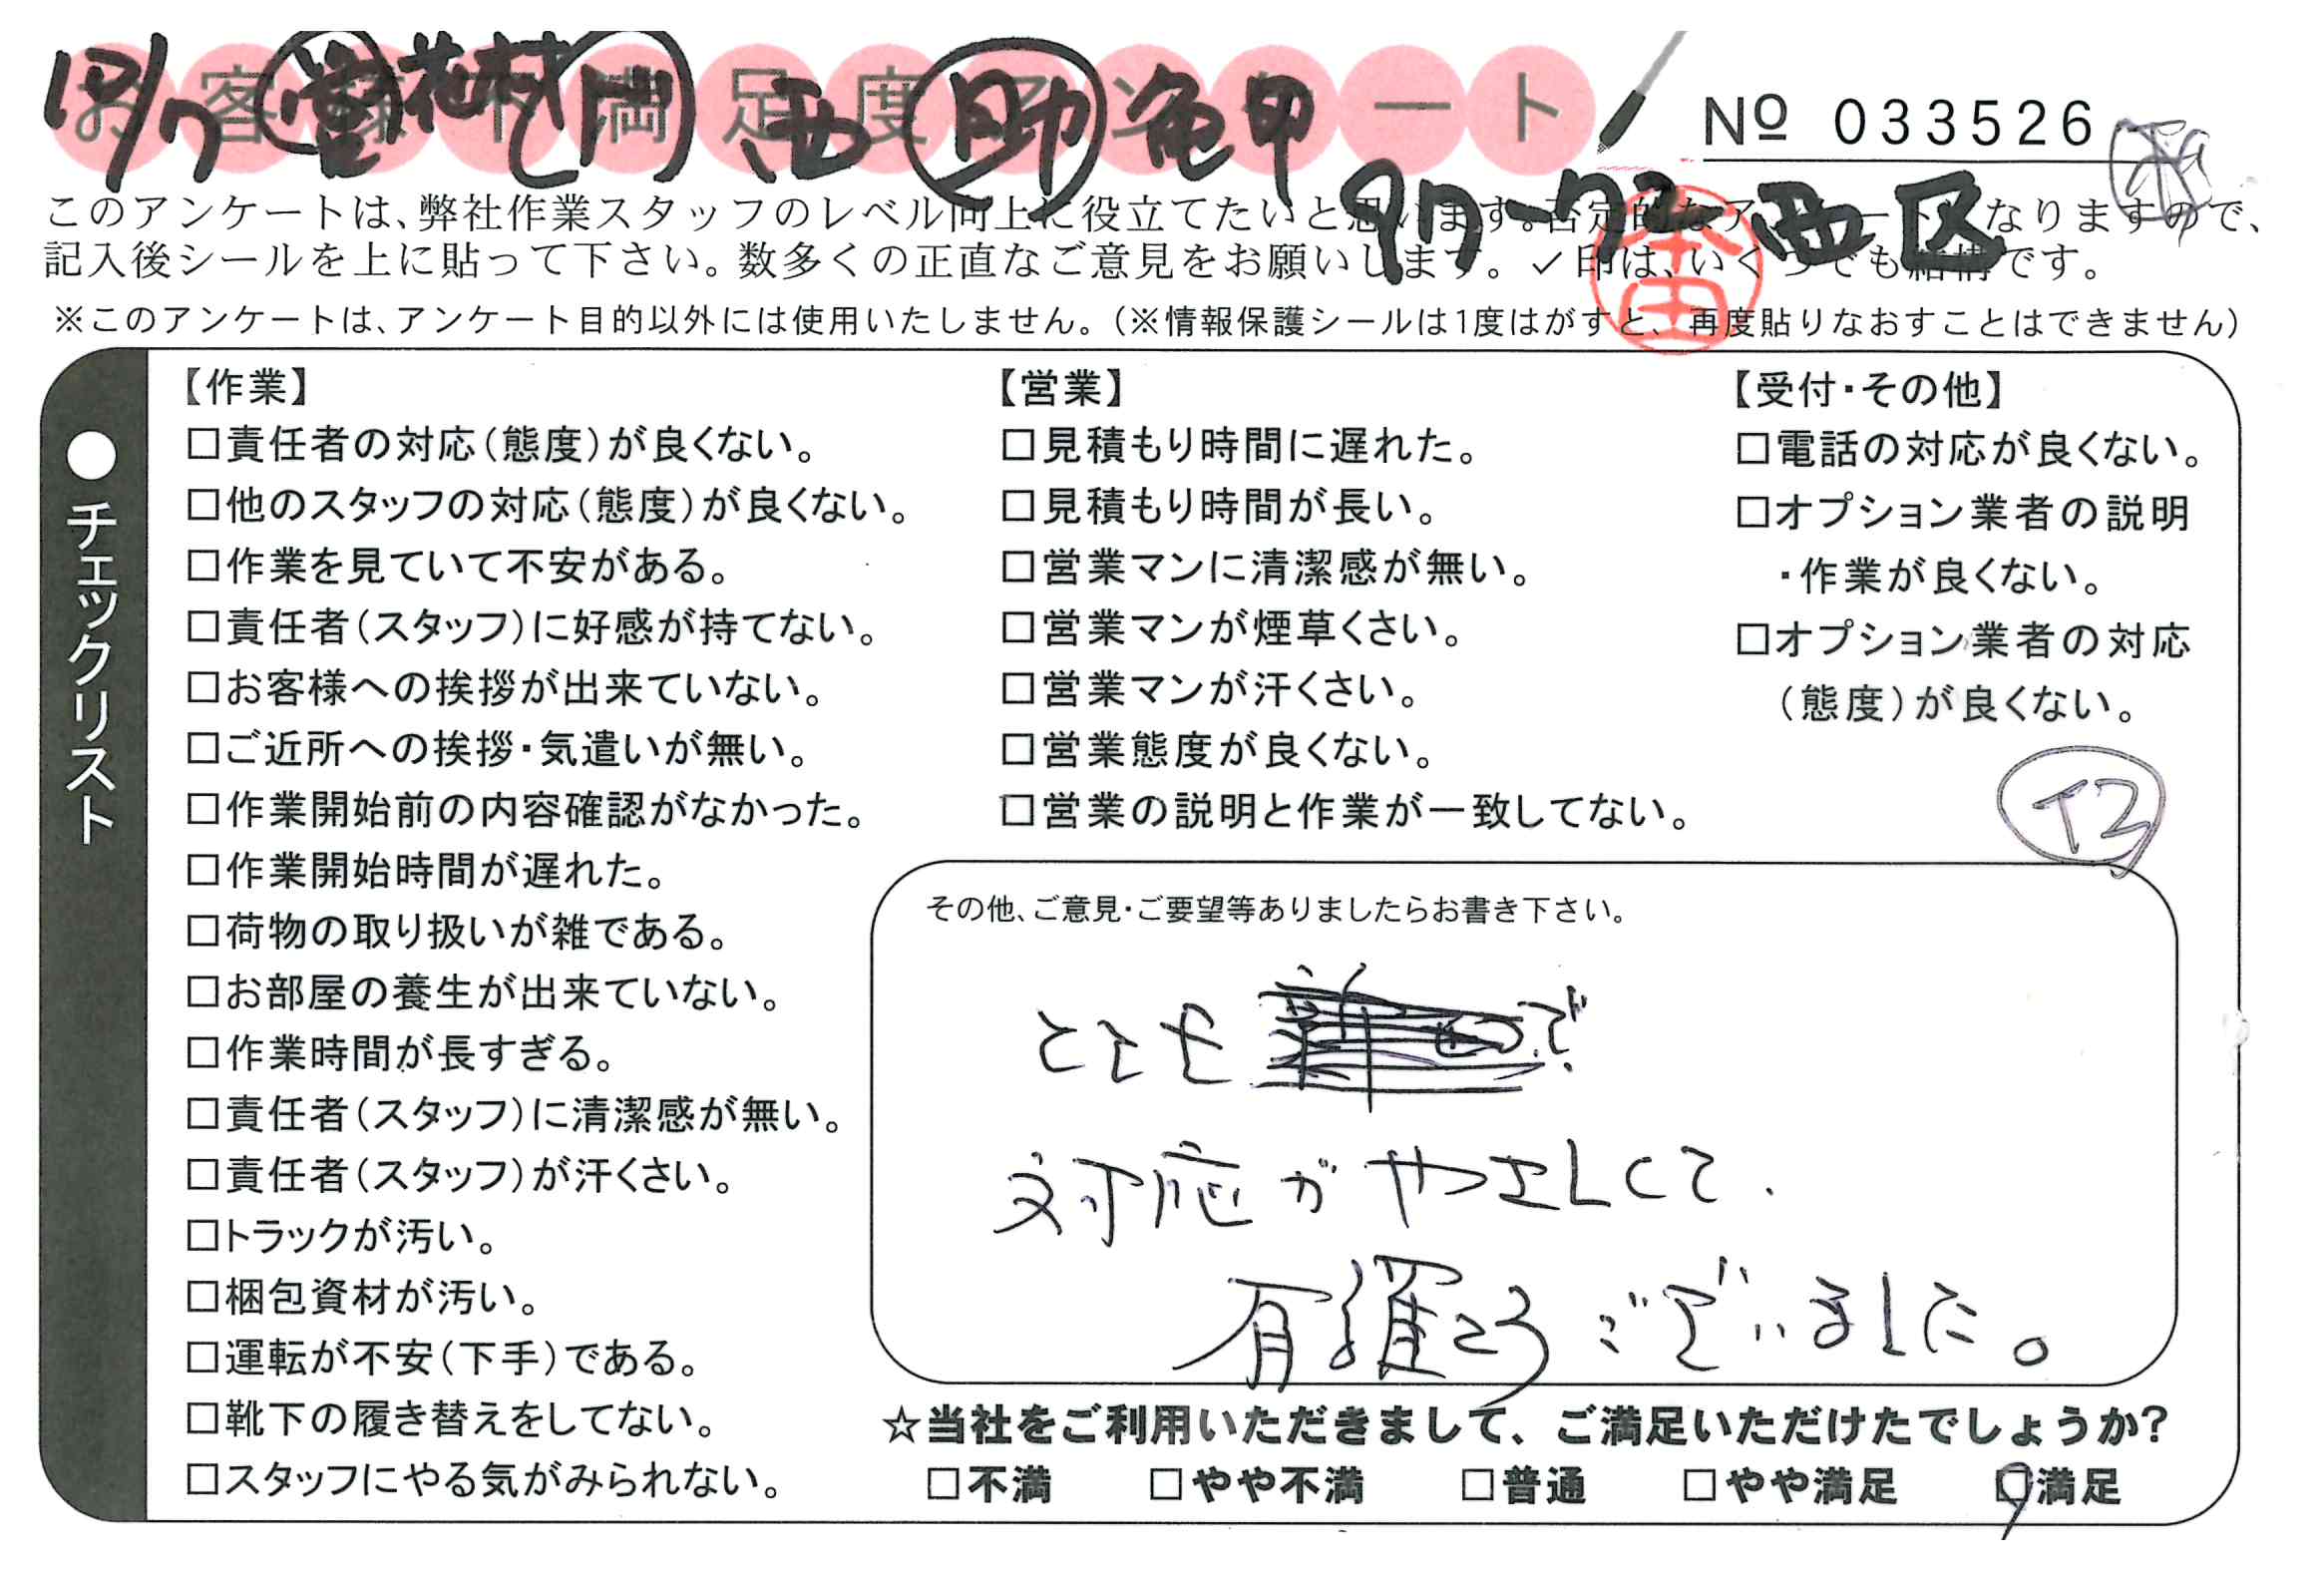 お客様不満足度アンケート
12/7 営 花村 門 西 助 亀甲
№ 033526
97-72 西区
このアンケートは、弊社作業スタッフのレベル向上に役立てたいと思います。否定的なアンケートになりますので、
記入後シールを上に貼って下さい。数多くの正直なご意見をお願いします。✓印は、いくつでも結構です。
※このアンケートは、アンケート目的以外には使用いたしません。(※情報保護シールは1度はがすと、再度貼りなおすことはできません)
●チェックリスト
【作業】
□責任者の対応(態度)が良くない。
□他のスタッフの対応(態度)が良くない。
□作業を見ていて不安がある。
□責任者(スタッフ)に好感が持てない。
□お客様への挨拶が出来ていない。
□ご近所への挨拶・気遣いが無い。
□作業開始前の内容確認がなかった。
□作業開始時間が遅れた。
□荷物の取り扱いが雑である。
□お部屋の養生が出来ていない。
□作業時間が長すぎる。
□責任者(スタッフ)に清潔感が無い。
□責任者(スタッフ)が汗くさい。
□トラックが汚い。
□梱包資材が汚い。
□運転が不安(下手)である。
□靴下の履き替えをしてない。
□スタッフにやる気がみられない。
【営業】
□見積もり時間に遅れた。
□見積もり時間が長い。
□営業マンに清潔感が無い。
□営業マンが煙草くさい。
□営業マンが汗くさい。
□営業態度が良くない。
□営業の説明と作業が一致してない。
【受付・その他】
□電話の対応が良くない。
□オプション業者の説明
・作業が良くない。
□オプション業者の対応
(態度)が良くない。
その他、ご意見・ご要望等ありましたらお書き下さい。
とても
対応がやさしくて、
有難とうございました。
☆当社をご利用いただきまして、ご満足いただけたでしょうか?
□不満 □やや不満 □普通 □やや満足 □満足